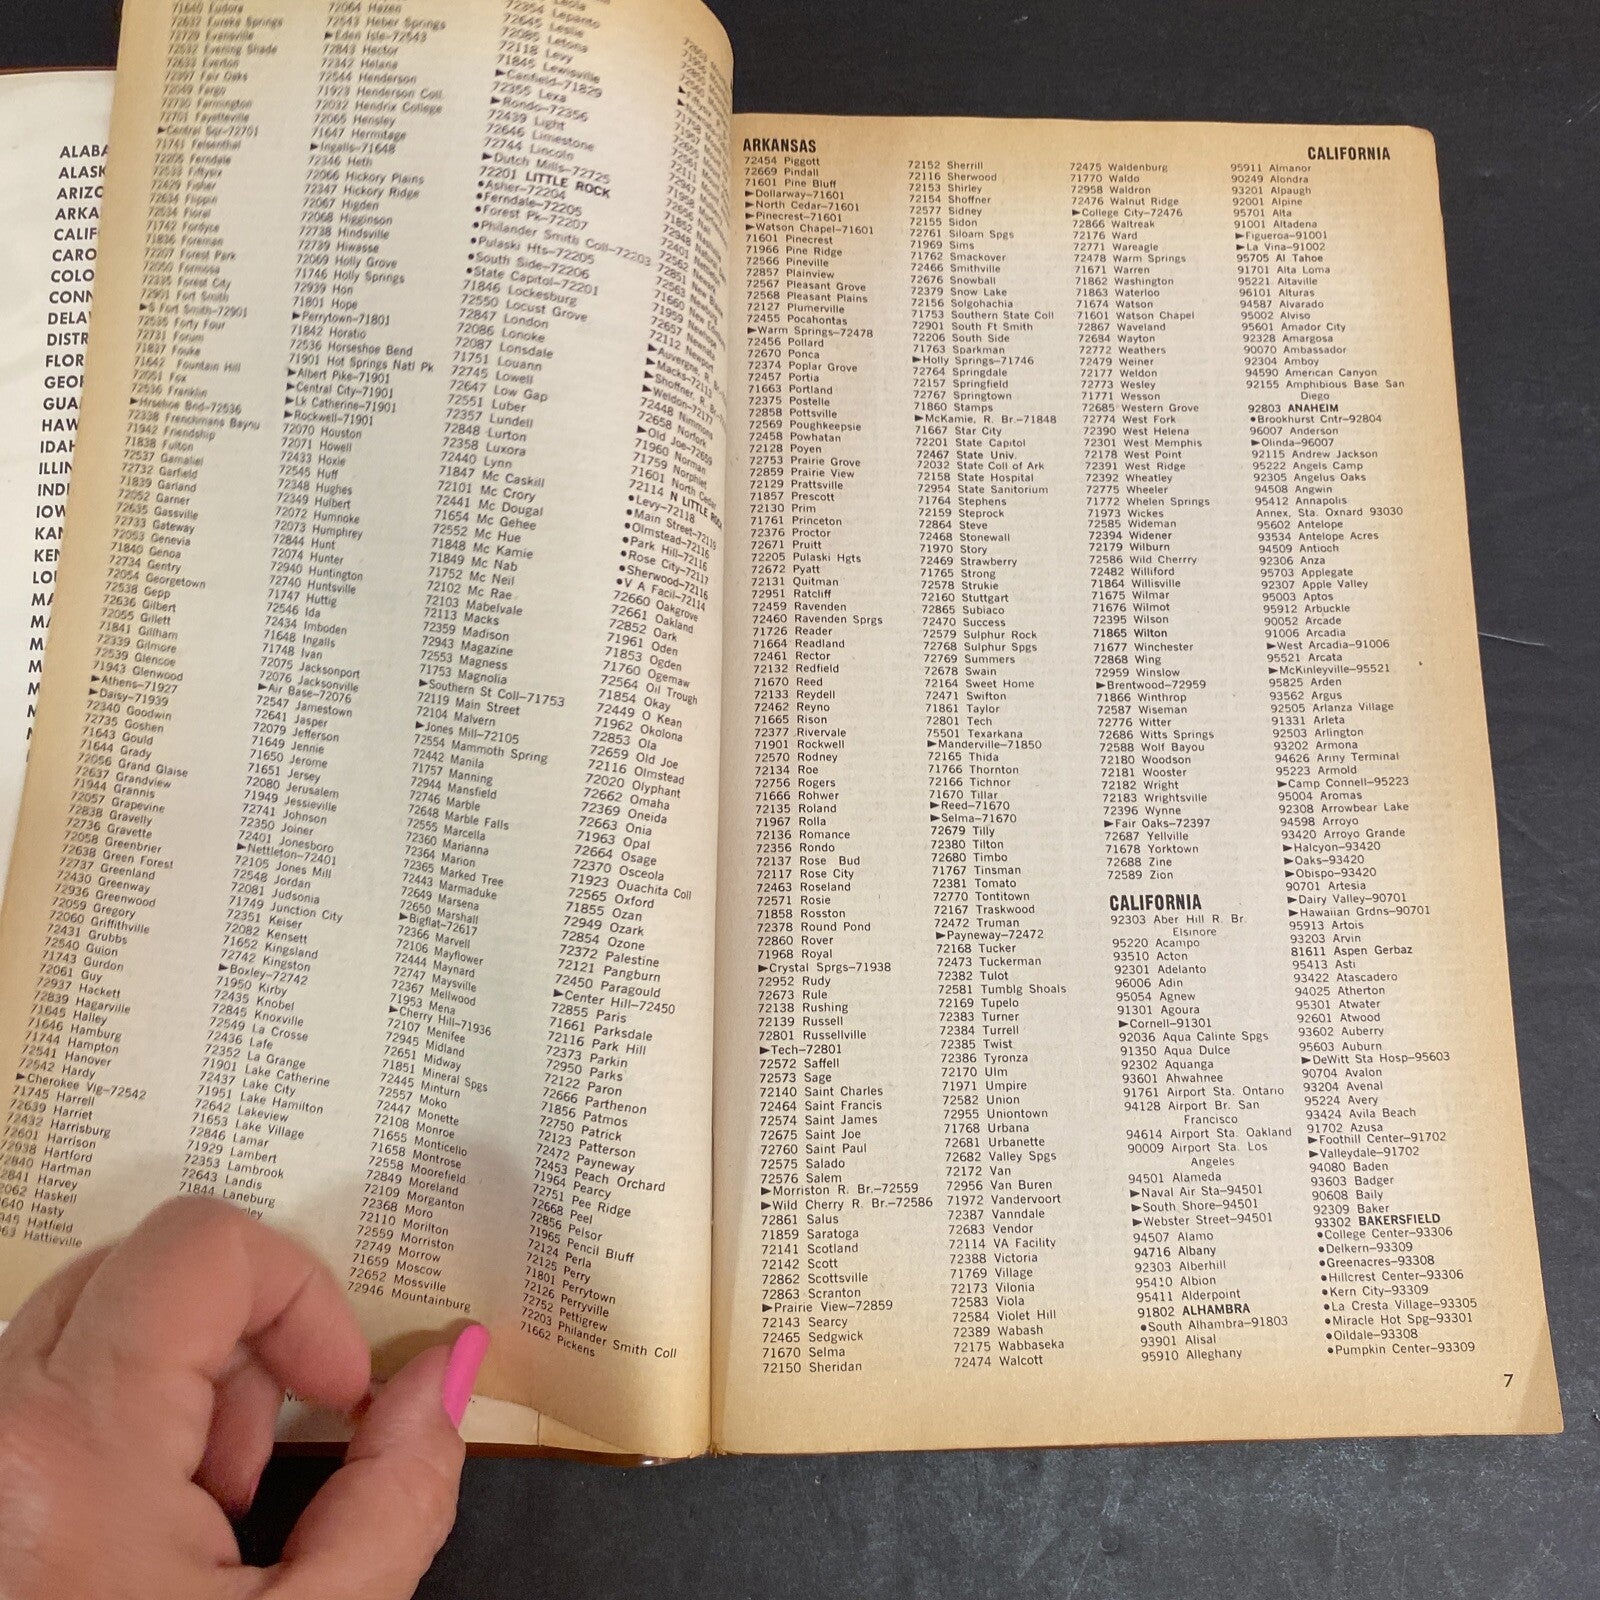 ALABA
ALASK
ARIZO
ARKA
CALIF
CARO
COLO
CONN
DELAV
DISTR
FLOR
GEO
GUA
HAW
IDAH
ILLIN
INDI
IOW
KAN
KEN
LO
71640 Eudora
72632 Eureka Springs
72729 Evansville
72532 Evening Shade
72633 Everton
72397 Fair Oaks
72049 Fargo
72730 Farmington
72701 Fayetteville
►Central Sqr–72701
71741 Felsenthal
72205 Ferndale
72533 Fiftysix
72429 Fisher
72634 Flippin
72534 Floral
71742 Fordyce
71836 Foreman
72207 Forest Park
72050 Formosa
72335 Forest City
72901 Fort Smith
►S Fort Smith–72901
72535 Forty Four
72731 Forum
71837 Fouke
71642 Fountain Hill
72051 Fox
72536 Franklin
►Hrsehoe Bnd–72536
72338 Frenchmans Bayou
71942 Friendship
71838 Fulton
72537 Gamaliel
72732 Garfield
71839 Garland
72052 Garner
72635 Gassville
72733 Gateway
72053 Genevia
71840 Genoa
72734 Gentry
72054 Georgetown
72538 Gepp
72636 Gilbert
72055 Gillett
71841 Gillham
72339 Gilmore
72539 Glencoe
71943 Glenwood
►Athens–71927
►Daisy–71939
72340 Goodwin
72735 Goshen
71643 Gould
71644 Grady
72056 Grand Glaise
72637 Grandview
71944 Grannis
72057 Grapevine
72838 Gravelly
72736 Gravette
72058 Greenbrier
72638 Green Forest
72737 Greenland
72430 Greenway
72936 Greenwood
72059 Gregory
72060 Griffithville
72431 Grubbs
72540 Guion
71743 Gurdon
72061 Guy
72937 Hackett
72839 Hagarville
71645 Halley
71646 Hamburg
71744 Hampton
72541 Hanover
72542 Hardy
►Cherokee Vig–72542
71745 Harrell
72639 Harriet
72432 Harrisburg
72601 Harrison
72938 Hartford
72840 Hartman
2841 Harvey
2062 Haskell
640 Hasty
945 Hatfield
063 Hattieville
72064 Hazen
72543 Heber Springs
►Eden Isle–72543
72843 Hector
72342 Helena
72544 Henderson
71923 Henderson Coll
72032 Hendrix College
72065 Hensley
71647 Hermitage
►Ingalls–71648
72346 Heth
72066 Hickory Plains
72347 Hickory Ridge
72067 Higden
72068 Higginson
72738 Hindsville
72739 Hiwasse
72069 Holly Grove
71746 Holly Springs
72939 Hon
71801 Hope
►Perrytown–71801
71842 Horatio
72536 Horseshoe Bend
71901 Hot Springs Natl Pk
►Albert Pike–71901
►Central City–71901
►Lk Catherine–71901
►Rockwell–71901
72070 Houston
72071 Howell
72433 Hoxie
72545 Huff
72348 Hughes
72349 Hulbert
72072 Humnoke
72073 Humphrey
72844 Hunt
72074 Hunter
72940 Huntington
72740 Huntsville
71747 Huttig
72546 Ida
72434 Imboden
71648 Ingalls
71748 Ivan
72075 Jacksonport
72076 Jacksonville
►Air Base–72076
72547 Jamestown
72641 Jasper
72079 Jefferson
71649 Jennie
71650 Jerome
71651 Jersey
72080 Jerusalem
71949 Jessieville
72741 Johnson
72350 Joiner
72401 Jonesboro
►Nettleton–72401
72105 Jones Mill
72548 Jordan
72081 Judsonia
71749 Junction City
72351 Keiser
72082 Kensett
71652 Kingsland
72742 Kingston
►Boxley–72742
71950 Kirby
72435 Knobel
72845 Knoxville
72549 La Crosse
72436 Lafe
72352 La Grange
71901 Lake Catherine
72437 Lake City
71951 Lake Hamilton
72642 Lakeview
71653 Lake Village
72846 Lamar
71929 Lambert
72353 Lambrook
72643 Landis
71844 Laneburg
72354 Lepanto
72645 Leslie
72085 Letona
72118 Levy
71845 Lewisville
►Canfield–71829
72355 Lexa
►Rondo–72356
72439 Light
72646 Limestone
72744 Lincoln
►Dutch Mills–72725
72201 LITTLE ROCK
●Asher–72204
●Ferndale–72205
●Forest Pk–72207
●Philander Smith Coll–72203
●Pulaski Hts–72205
●South Side–72206
●State Capitol–72201
71846 Lockesburg
72550 Locust Grove
72847 London
72086 Lonoke
72087 Lonsdale
71751 Louann
72745 Lowell
72647 Low Gap
72551 Luber
72357 Lundell
72848 Lurton
72358 Luxora
72440 Lynn
71847 Mc Caskill
72101 Mc Crory
72441 Mc Dougal
71654 Mc Gehee
72552 Mc Hue
71848 Mc Kamie
71849 Mc Nab
71752 Mc Neil
72102 Mc Rae
72103 Mabelvale
72113 Macks
72359 Madison
72943 Magazine
72553 Magness
71753 Magnolia
►Southern St Coll–71753
72119 Main Street
72104 Malvern
►Jones Mill–72105
72554 Mammoth Spring
72442 Manila
71757 Manning
72944 Mansfield
72746 Marble
72648 Marble Falls
72555 Marcella
72360 Marianna
72364 Marion
72365 Marked Tree
72443 Marmaduke
72649 Marsena
72650 Marshall
►Bigflat–72617
72366 Marvell
72106 Mayflower
72444 Maynard
72747 Maysville
72367 Mellwood
71953 Mena
►Cherry Hill–71936
72107 Menifee
72945 Midland
72651 Midway
71851 Mineral Spgs
72445 Minturn
72557 Moko
72447 Monette
72108 Monroe
71655 Monticello
71658 Montrose
72558 Moorefield
72849 Moreland
72109 Morganton
72368 Moro
72110 Morilton
72559 Morriston
72749 Morrow
71659 Moscow
72652 Mossville
72946 Mountainburg
72448 Nimmons
72658 Norfork
►Old Joe–72659
71960 Norman
71759 Norphlet
71601 North Cedar
72114 N LITTLE ROCK
●Levy–72118
●Main Street–72119
●Olmstead–72116
●Park Hill–72116
●Rose City–72117
●Sherwood–72116
●V A Facil–72114
72660 Oakgrove
72661 Oakland
72852 Oark
71961 Oden
71853 Ogden
71760 Ogemaw
72564 Oil Trough
71854 Okay
72449 O Kean
71962 Okolona
72853 Ola
72659 Old Joe
72116 Olmstead
72020 Olyphant
72662 Omaha
72369 Oneida
72663 Onia
71963 Opal
72664 Osage
72370 Osceola
71923 Ouachita Coll
72565 Oxford
71855 Ozan
72949 Ozark
72854 Ozone
72372 Palestine
72121 Pangburn
72450 Paragould
►Center Hill–72450
72855 Paris
71661 Parksdale
72116 Park Hill
72373 Parkin
72950 Parks
72122 Paron
72666 Parthenon
71856 Patmos
72750 Patrick
72123 Patterson
72472 Payneway
72453 Peach Orchard
71964 Pearcy
72751 Pee Ridge
72668 Peel
72856 Pelsor
71965 Pencil Bluff
72124 Perla
72125 Perry
71801 Perrytown
72126 Perryville
72752 Pettigrew
72203 Philander Smith Coll
71662 Pickens
ARKANSAS
CALIFORNIA
72454 Piggott
72669 Pindall
71601 Pine Bluff
►Dollarway–71601
►North Cedar–71601
►Pinecrest–71601
►Watson Chapel–71601
71601 Pinecrest
71966 Pine Ridge
72566 Pineville
72857 Plainview
72567 Pleasant Grove
72568 Pleasant Plains
72127 Plumerville
72455 Pocahontas
►Warm Springs–72478
72456 Pollard
72670 Ponca
72374 Poplar Grove
72457 Portia
71663 Portland
72375 Postelle
72858 Pottsville
72569 Poughkeepsie
72458 Powhatan
72128 Poyen
72753 Prairie Grove
72859 Prairie View
72129 Prattsville
71857 Prescott
72130 Prim
71761 Princeton
72376 Proctor
72671 Pruitt
72205 Pulaski Hgts
72672 Pyatt
72131 Quitman
72951 Ratcliff
72459 Ravenden
72460 Ravenden Sprgs
71726 Reader
71664 Readland
72461 Rector
72132 Redfield
71670 Reed
72133 Reydell
72462 Reyno
71665 Rison
72377 Rivervale
71901 Rockwell
72570 Rodney
72134 Roe
72756 Rogers
71666 Rohwer
72135 Roland
71967 Rolla
72136 Romance
72356 Rondo
72137 Rose Bud
72117 Rose City
72463 Roseland
72571 Rosie
71858 Rosston
72378 Round Pond
72860 Rover
71968 Royal
►Crystal Sprgs–71938
72952 Rudy
72673 Rule
72138 Rushing
72139 Russell
72801 Russellville
►Tech–72801
72572 Saffell
72573 Sage
72140 Saint Charles
72464 Saint Francis
72574 Saint James
72675 Saint Joe
72760 Saint Paul
72575 Salado
72576 Salem
►Morriston R. Br.–72559
►Wild Cherry R. Br.–72586
72861 Salus
71859 Saratoga
72141 Scotland
72142 Scott
72862 Scottsville
72863 Scranton
►Prairie View–72859
72143 Searcy
72465 Sedgwick
71670 Selma
72150 Sheridan
72152 Sherrill
72116 Sherwood
72153 Shirley
72154 Shoffner
72577 Sidney
72155 Sidon
72761 Siloam Spgs
71969 Sims
71762 Smackover
72466 Smithville
72676 Snowball
72379 Snow Lake
72156 Solgohachia
71753 Southern State Coll
72901 South Ft Smith
72206 South Side
71763 Sparkman
►Holly Springs–71746
72764 Springdale
72157 Springfield
72767 Springtown
71860 Stamps
►McKamie, R. Br–71848
71667 Star City
72201 State Capitol
72467 State Univ.
72032 State Coll of Ark
72158 State Hospital
72954 State Sanitorium
71764 Stephens
72159 Steprock
72864 Steve
72468 Stonewall
71970 Story
72469 Strawberry
71765 Strong
72578 Strukie
72160 Stuttgart
72865 Subiaco
72470 Success
72579 Sulphur Rock
72768 Sulphur Spgs
72769 Summers
72678 Swain
72164 Sweet Home
72471 Swifton
71861 Taylor
72801 Tech
75501 Texarkana
►Manderville–71850
72165 Thida
71766 Thornton
72166 Tichnor
71670 Tillar
►Reed–71670
►Selma–71670
72679 Tilly
72380 Tilton
72680 Timbo
71767 Tinsman
72381 Tomato
72770 Tontitown
72167 Traskwood
72472 Truman
►Payneway–72472
72168 Tucker
72473 Tuckerman
72382 Tulot
72581 Tumblg Shoals
72169 Tupelo
72383 Turner
72384 Turrell
72385 Twist
72386 Tyronza
72170 Ulm
71971 Umpire
72582 Union
72955 Uniontown
71768 Urbana
72681 Urbanette
72682 Valley Spgs
72172 Van
72956 Van Buren
71972 Vandervoort
72387 Vanndale
72683 Vendor
72114 VA Facility
72388 Victoria
71769 Village
72173 Vilonia
72583 Viola
72584 Violet Hill
72389 Wabash
72175 Wabbaseka
72474 Walcott
72475 Waldenburg
71770 Waldo
72958 Waldron
72476 Walnut Ridge
►College City–72476
72866 Waltreak
72176 Ward
72771 Wareagle
72478 Warm Springs
71671 Warren
71862 Washington
71863 Waterloo
71674 Watson
71601 Watson Chapel
72867 Waveland
72684 Wayton
72772 Weathers
72479 Weiner
72177 Weldon
72773 Wesley
71771 Wesson
72685 Western Grove
72774 West Fork
72390 West Helena
72301 West Memphis
72178 West Point
72391 West Ridge
72392 Wheatley
72775 Wheeler
71772 Whelen Springs
71973 Wickes
72585 Wideman
72394 Widener
72179 Wilburn
72586 Wild Cherrry
72482 Williford
71864 Willisville
71675 Wilmar
71676 Wilmot
72395 Wilson
71865 Wilton
71677 Winchester
72868 Wing
72959 Winslow
►Brentwood–72959
71866 Winthrop
72587 Wiseman
72776 Witter
72686 Witts Springs
72588 Wolf Bayou
72180 Woodson
72181 Wooster
72182 Wright
72183 Wrightsville
72396 Wynne
►Fair Oaks–72397
72687 Yellville
71678 Yorktown
72688 Zine
72589 Zion
CALIFORNIA
92303 Aber Hill R. Br.
Elsinore
95220 Acampo
93510 Acton
92301 Adelanto
96006 Adin
95054 Agnew
91301 Agoura
►Cornell–91301
92036 Aqua Calinte Spgs
91350 Aqua Dulce
92302 Aquanga
93601 Ahwahnee
91761 Airport Sta. Ontario
94128 Airport Br. San
Francisco
94614 Airport Sta. Oakland
90009 Airport Sta. Los
Angeles
94501 Alameda
►Naval Air Sta–94501
►South Shore–94501
►Webster Street–94501
94507 Alamo
94716 Albany
92303 Alberhill
95410 Albion
95411 Alderpoint
91802 ALHAMBRA
●South Alhambra–91803
93901 Alisal
95910 Alleghany
95911 Almanor
90249 Alondra
93201 Alpaugh
92001 Alpine
95701 Alta
91001 Altadena
►Figueroa–91001
►La Vina–91002
95705 Al Tahoe
91701 Alta Loma
95221 Altaville
96101 Alturas
94587 Alvarado
95002 Alviso
95601 Amador City
92328 Amargosa
90070 Ambassador
92304 Amboy
94590 American Canyon
92155 Amphibious Base San
Diego
92803 ANAHEIM
●Brookhurst Cntr–92804
96007 Anderson
►Olinda–96007
92115 Andrew Jackson
95222 Angels Camp
92305 Angelus Oaks
94508 Angwin
95412 Annapolis
Annex, Sta. Oxnard 93030
95602 Antelope
93534 Antelope Acres
94509 Antioch
92306 Anza
95703 Applegate
92307 Apple Valley
95003 Aptos
95912 Arbuckle
90052 Arcade
91006 Arcadia
►West Arcadia–91006
95521 Arcata
►McKinleyville–95521
95825 Arden
93562 Argus
92505 Arlanza Village
91331 Arleta
92503 Arlington
93202 Armona
94626 Ariny Terminal
95223 Armold
►Camp Connell–95223
95004 Aromas
92308 Arrowbear Lake
94598 Arroyo
93420 Arroyo Grande
►Halcyon–93420
►Oaks–93420
►Obispo–93420
90701 Artesia
►Dairy Valley–90701
►Hawaiian Grdns–90701
95913 Artois
93203 Arvin
81611 Aspen Gerbaz
95413 Asti
93422 Atascadero
94025 Atherton
95301 Atwater
92601 Atwood
93602 Auberry
95603 Auburn
►DeWitt Sta Hosp–95603
90704 Avalon
93204 Avenal
95224 Avery
93424 Avila Beach
91702 Azusa
►Foothill Center–91702
►Valleydale–91702
94080 Baden
93603 Badger
90608 Baily
92309 Baker
93302 BAKERSFIELD
●College Center–93306
●Delkern–93309
●Greenacres–93308
●Hillcrest Center–93306
●Kern City–93309
●La Cresta Village–93305
●Miracle Hot Spg–93301
●Oildale–93308
●Pumpkin Center–93309
7